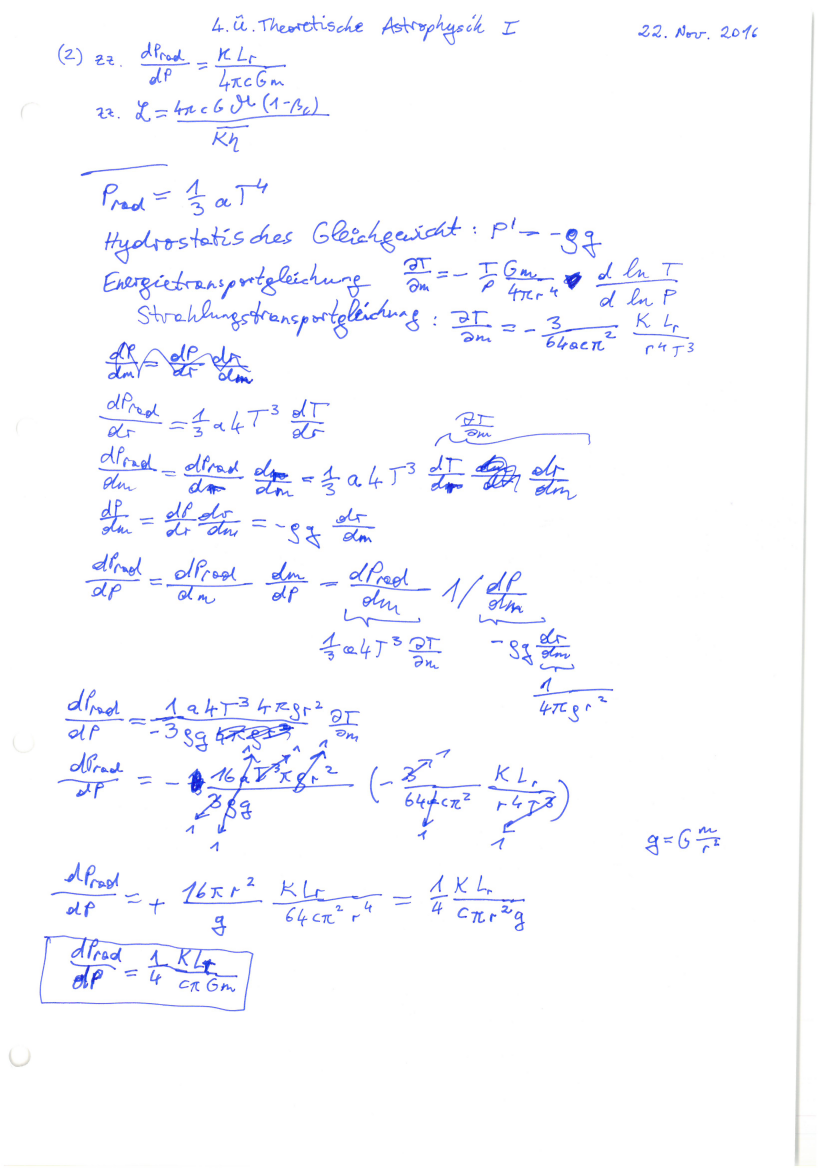 4. Ü. Theoretische Astrophysik I 22. Nov. 2016
(2) zz. dPrad/dP = κ Lr / 4πcGm
zz. ℒ = 4πcG ℳ (1-βc) / κη
Prad = 1/3 a T⁴
Hydrostatisches Gleichgewicht : P' = -ρg
Energietransportgleichung ∂T/∂m = - T/P Gm/4πr⁴ d ln T / d ln P
Strahlungstransportgleichung : ∂T/∂m = - 3/64acπ² κ Lr / r⁴T³
dP/dm = dP/dr dr/dm
dPrad/dr = 1/3 a 4 T³ dT/dr
∂T/∂m
dPrad/dm = dPrad/dr dr/dm = 1/3 a 4 T³ dT/dr dr/dm
dP/dm = dP/dr dr/dm = -ρg dr/dm
dPrad/dP = dPrad/dm dm/dP = dPrad/dm 1/ dP/dm
1/3 a 4 T³ ∂T/∂m -ρg dr/dm
1/4πρr²
dPrad/dP = 1 a 4 T³ 4πρr² / -3ρg ∂T/∂m
1 1 1 1
dPrad/dP = - 16 a T³ π ρ r² / 3ρg (- 3/64acπ² κ Lr / r⁴T³)
1 1 1 1
g = G m/r²
dPrad/dP = + 16πr²/g κLr / 64cπ² r⁴ = 1/4 κ Lr / cπr²g
dPrad/dP = 1/4 κLr / cπGm